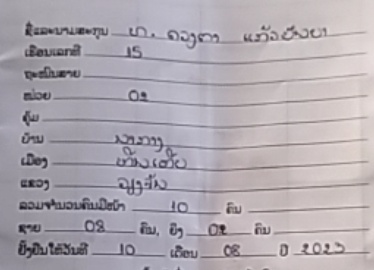 ຊື່ແລະນາມສະກຸນ ທ. ດວງຕາ ແກ້ວຍັງຍາ
ເຮືອນເລກທີ 15
ຖະໜົນສາຍ
ໜ່ວຍ 02
ຄຸ້ມ
ບ້ານ ນາກາງ
ເມືອງ
ແຂວງ
ລວມຈຳນວນຄົນມີໜ້າ 10 ຄົນ
ຊາຍ 08 ຄົນ, ຍິງ 02 ຄົນ
ຢັ້ງຢືນໃຫ້ວັນທີ 10 ເດືອນ 08 ປີ 2023